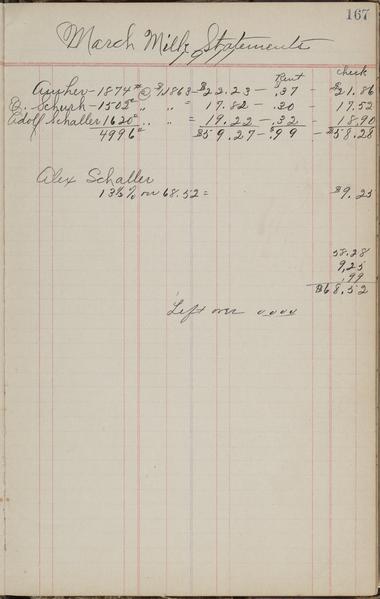 167
March Milk Statements
Rent check
1874# @ $1.1863 - $22.23 - .37 - $21.86
1502# " " = 17.82 - .30 - 17.52
Adolf Schaller 1620# " " = 19.22 - .32 - 18.90
4996# $59.27 - $.99 - $58.28
Alex Schaller
13½% on 68.52 = $9.25
58.28
9.25
.99
$68.52
Left over